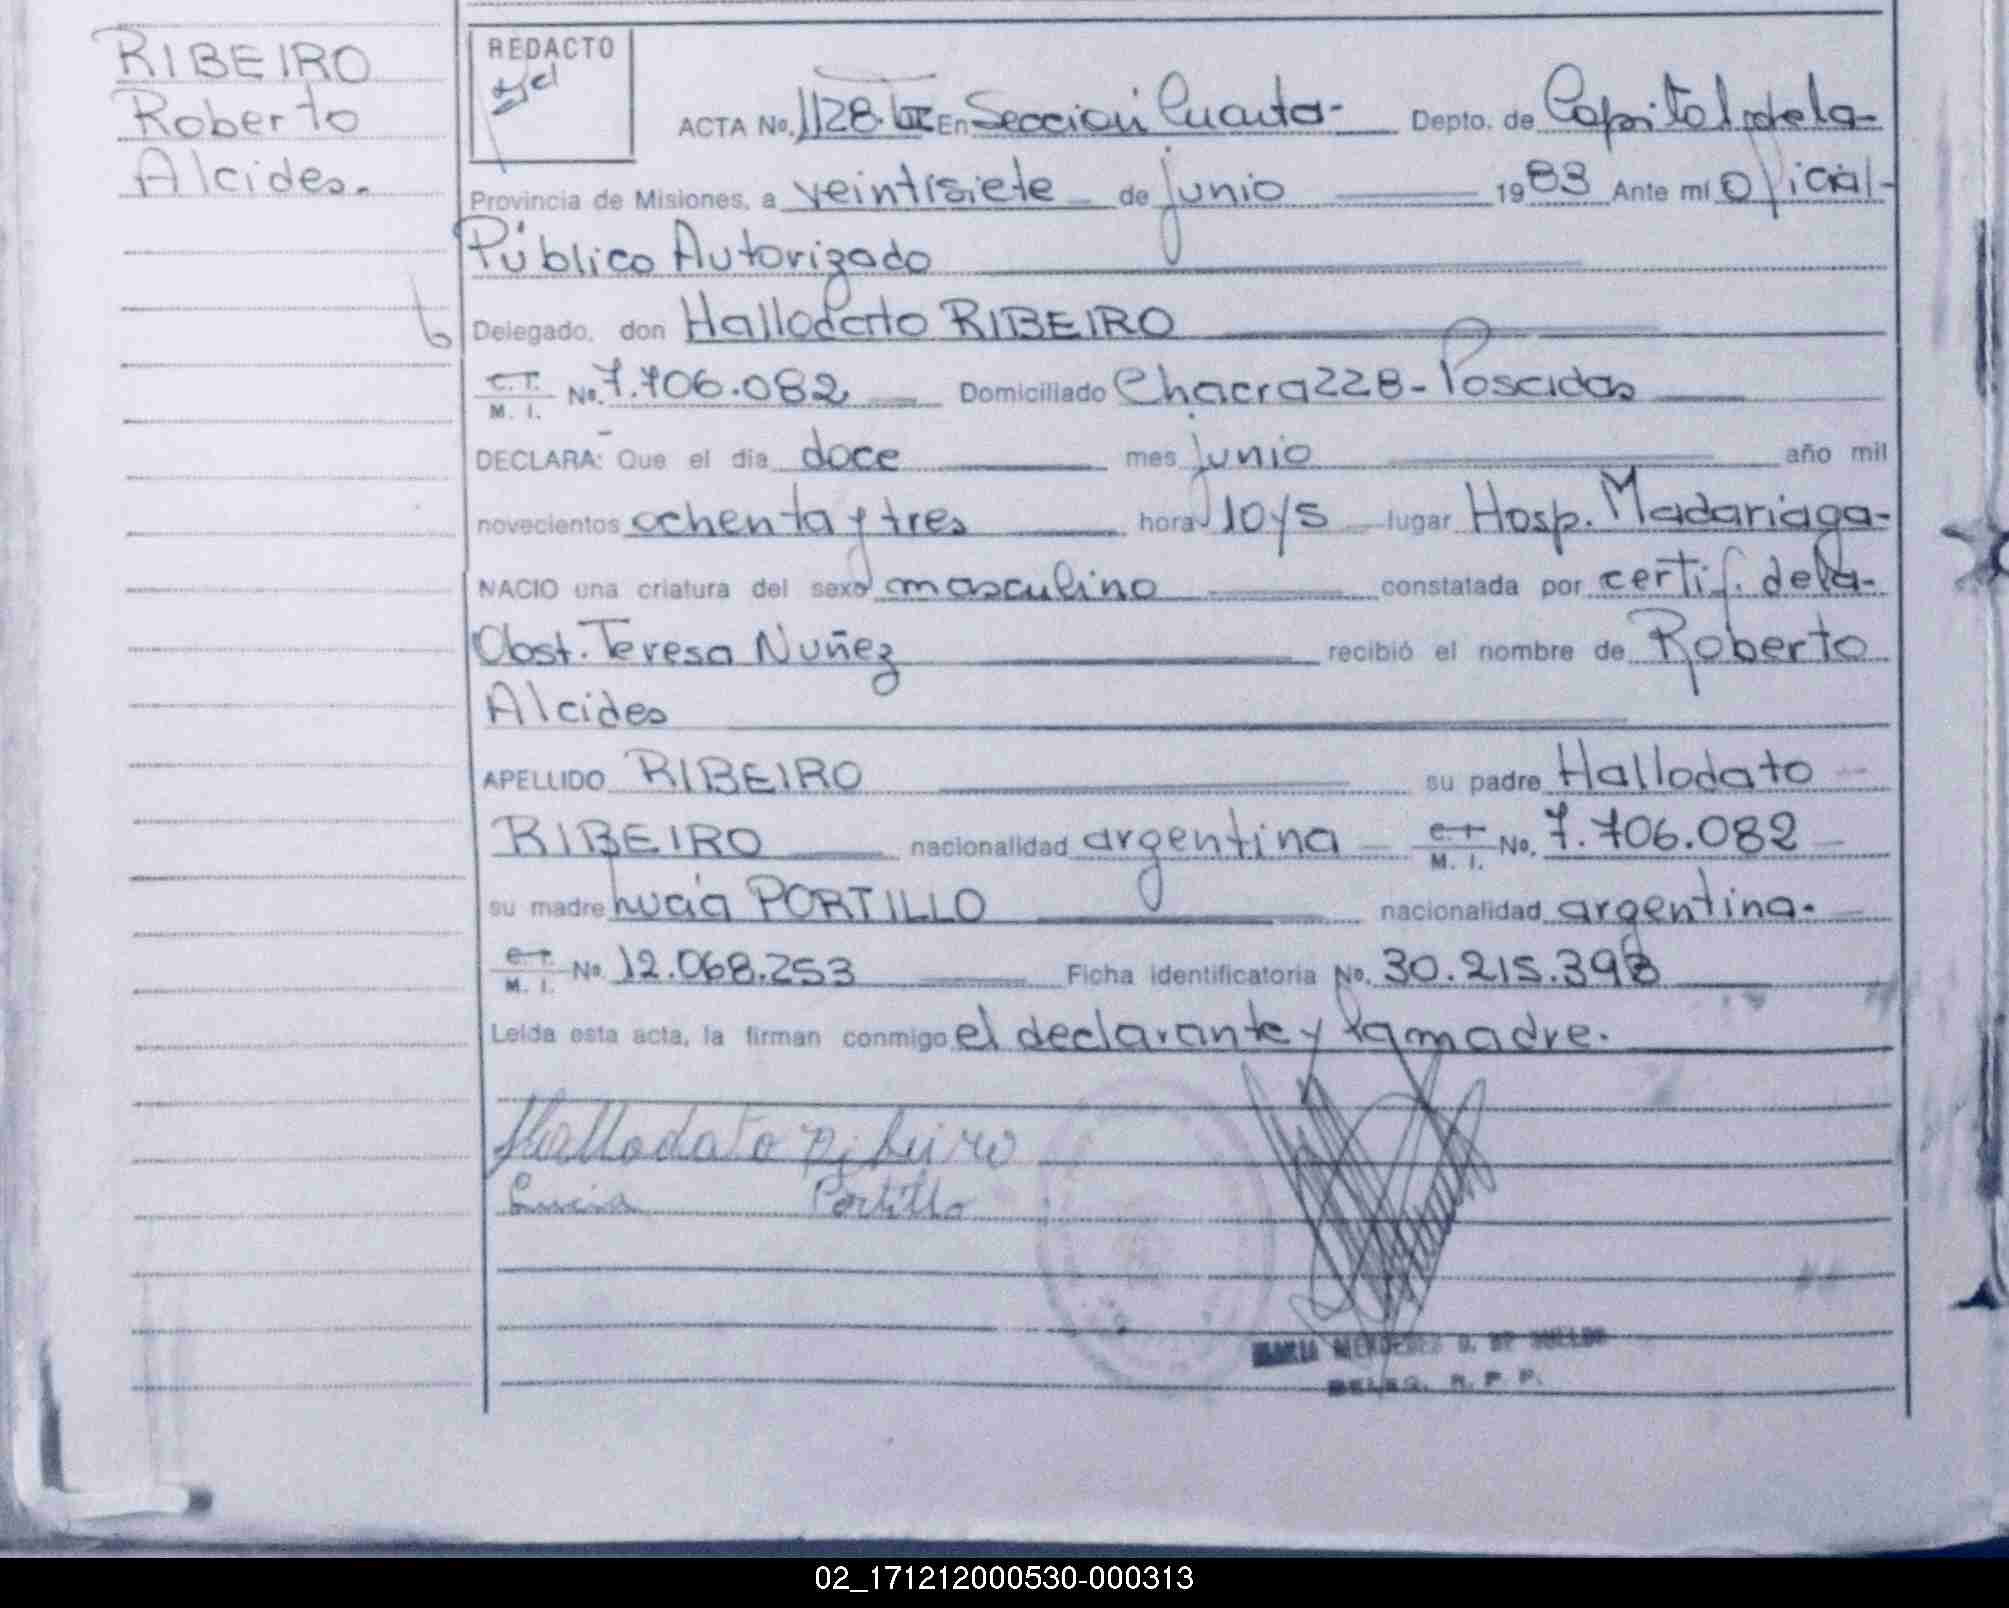 RIBEIRO
Roberto
Alcides.
REDACTO
ACTA No. 1128. En Sección Cuarta- Depto. de Capital, de la-
Provincia de Misiones, a veintisiete de junio 1983 Ante mí Oficial-
Público Autorizado
Delegado, don Hallodato RIBEIRO
C.I. M. I. No. 7.706.082 Domiciliado Chacra 228- Posadas
DECLARA: Que el día doce mes junio año mil
novecientos ochenta y tres hora 10 y 5 lugar Hosp. Madariaga-
NACIO una criatura del sexo masculino constatada por certif. de la-
Obst. Teresa Nuñez recibió el nombre de Roberto
Alcides
APELLIDO RIBEIRO su padre Hallodato
RIBEIRO nacionalidad argentina C.I. M. I. No. 7.706.082
su madre Lucía PORTILLO nacionalidad argentina.
C.I. M. I. No. 12.068.253 Ficha identificatoria No. 30.215.398
Leída esta acta, la firman conmigo el declarante y la madre.
Hallodato Ribeiro
Lucia Portillo
DELEG. R. P. P.
02_171212000530-000313